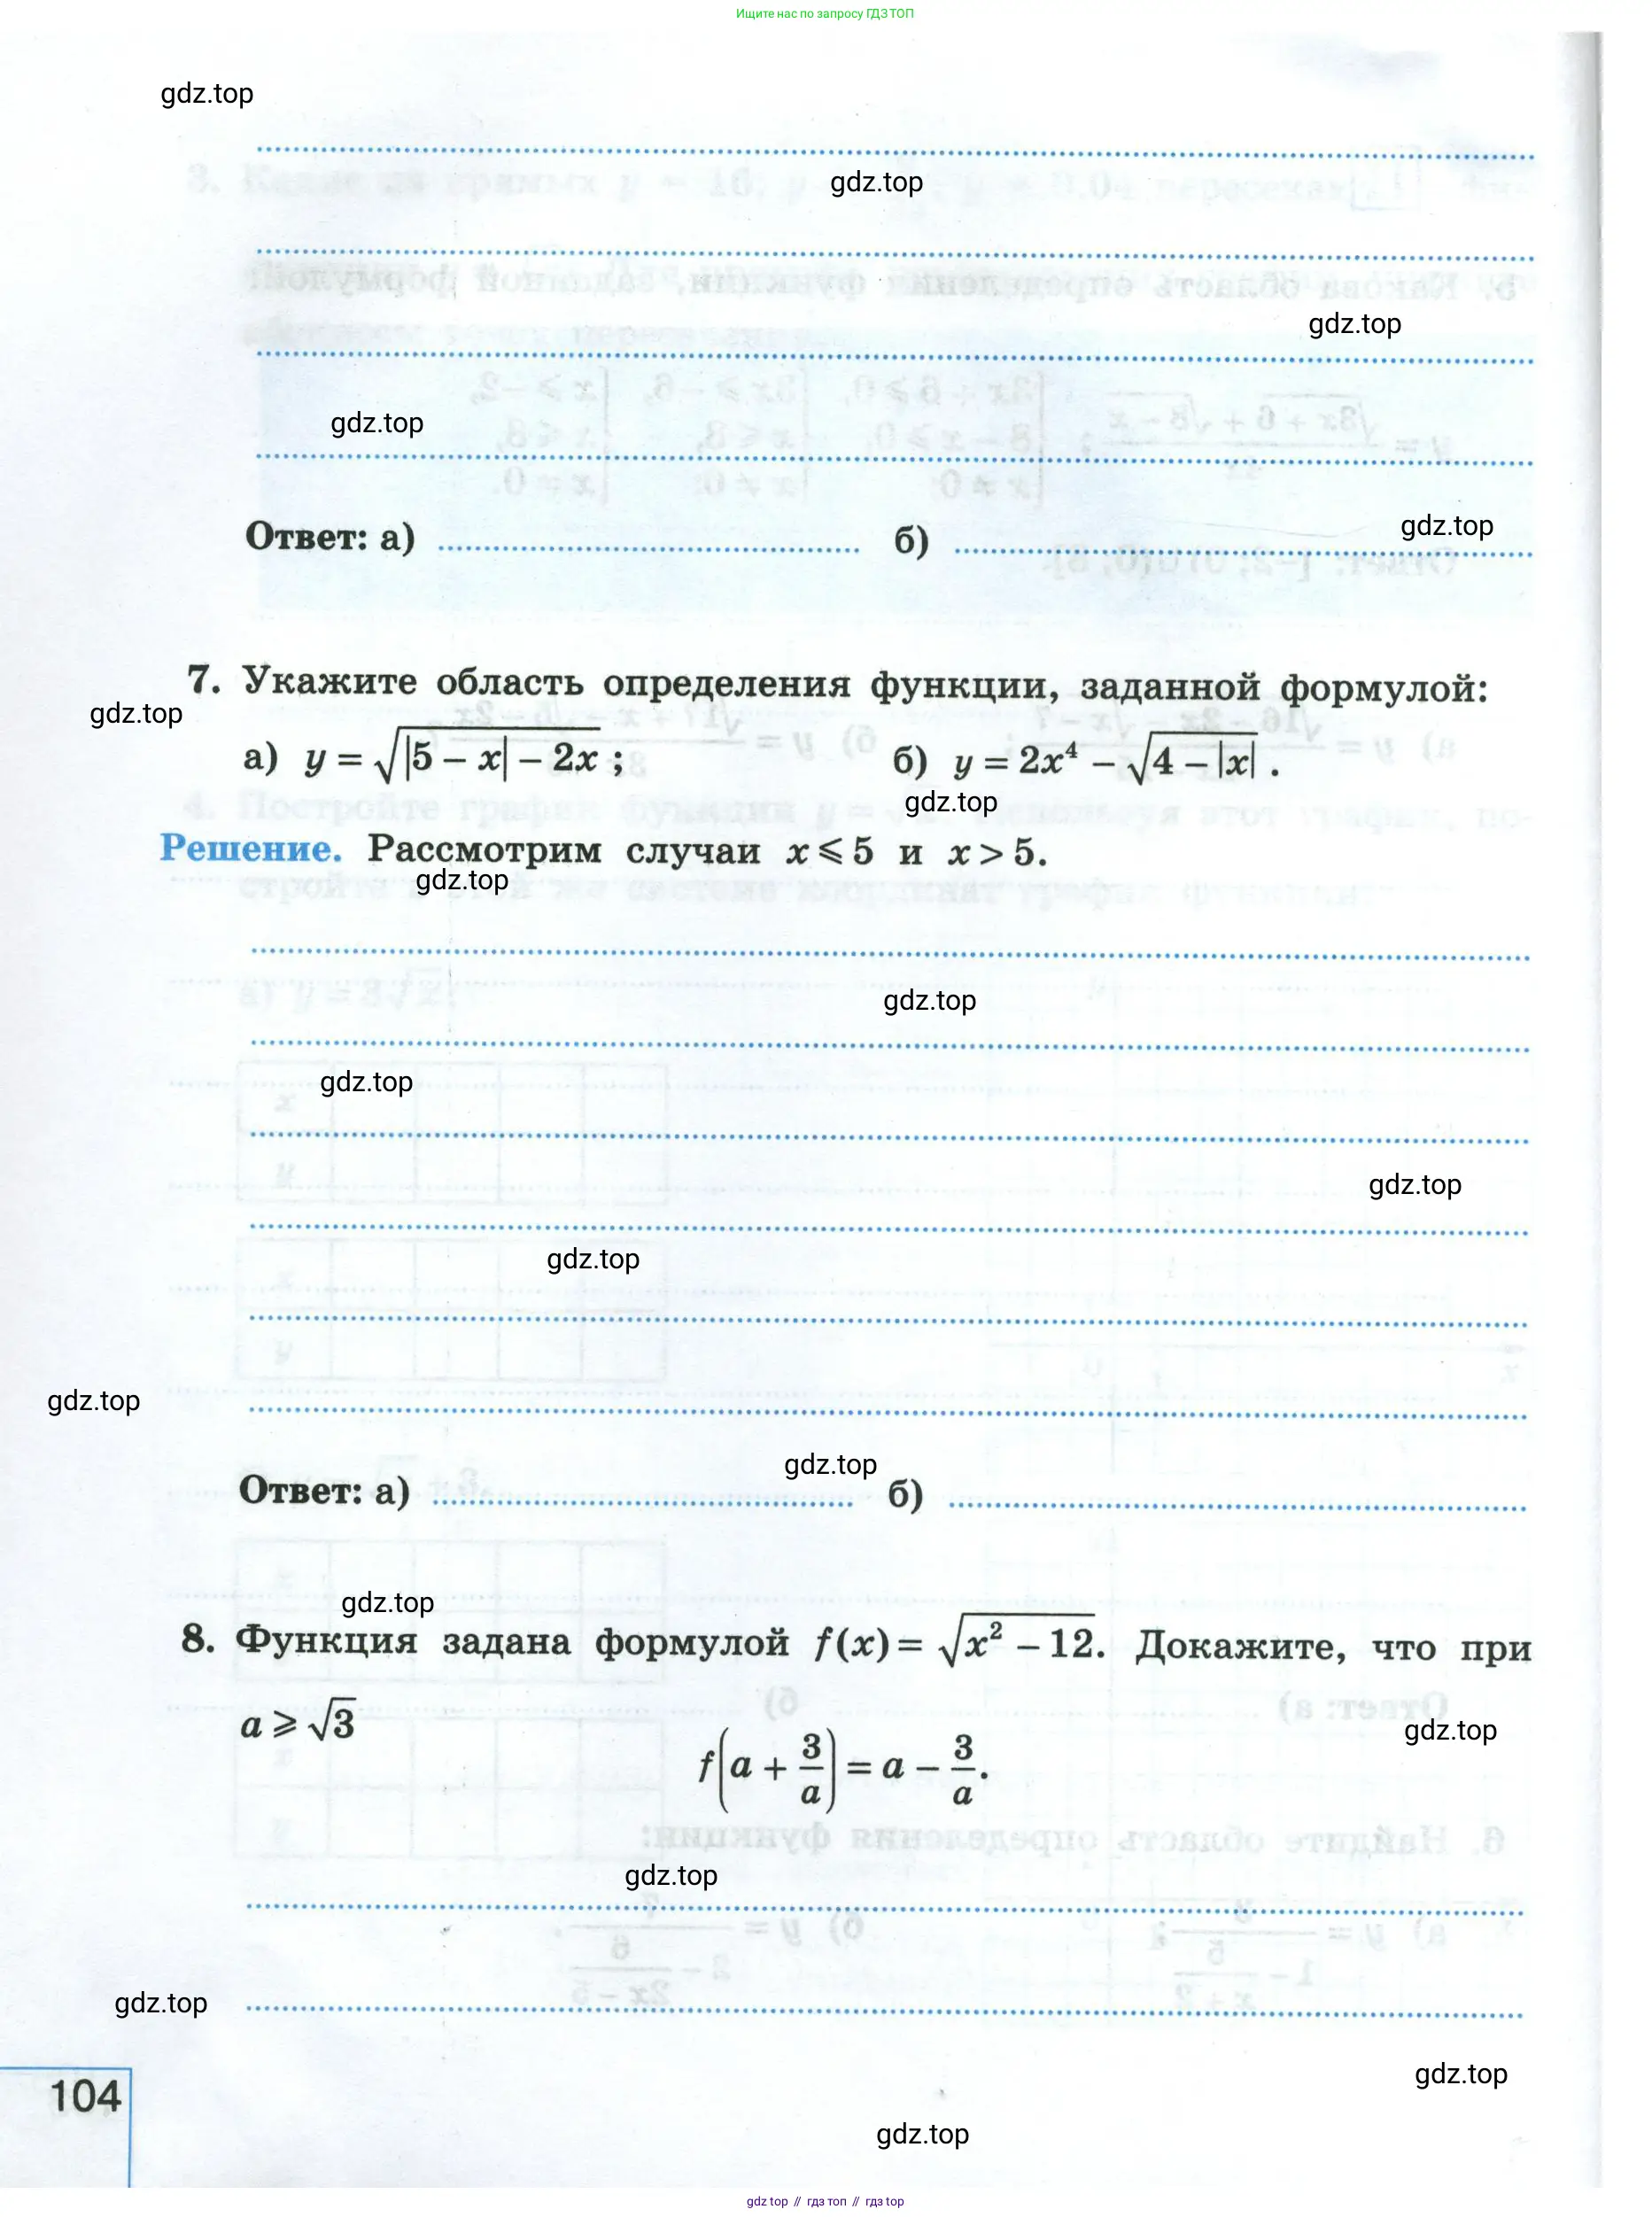 Ищите нас по запросу ГДЗ ТОП
gdz.top
gdz.top
gdz.top
gdz.top
gdz.top
Ответ: а) б)
7. Укажите область определения функции, заданной формулой:
gdz.top
а) y = √(|5 – x| – 2x) ; б) y = 2x⁴ – √(4 – |x|) .
gdz.top
Решение. Рассмотрим случаи x ⩽ 5 и x > 5.
gdz.top
gdz.top
gdz.top
gdz.top
gdz.top
gdz.top
gdz.top
Ответ: а) б)
gdz.top
8. Функция задана формулой f(x) = √(x² – 12). Докажите, что при
a ⩾ √3
gdz.top
f(a + 3/a) = a – 3/a.
gdz.top
gdz.top
gdz.top
104
gdz.top
gdz top // гдз топ // гдз top